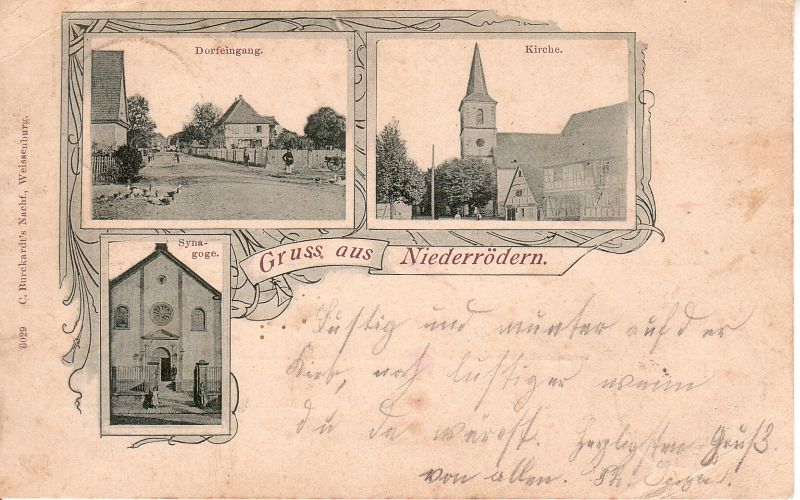 Dorfeingang.
Kirche.
Syna-
goge.
Gruss aus Niederrödern.
6029 C. Burckardt's Nachf., Weissenburg.
Lustig und munter auf der
Kirb, noch lustiger wenn
du da wärest. Herzligsten Gruß
von allen.